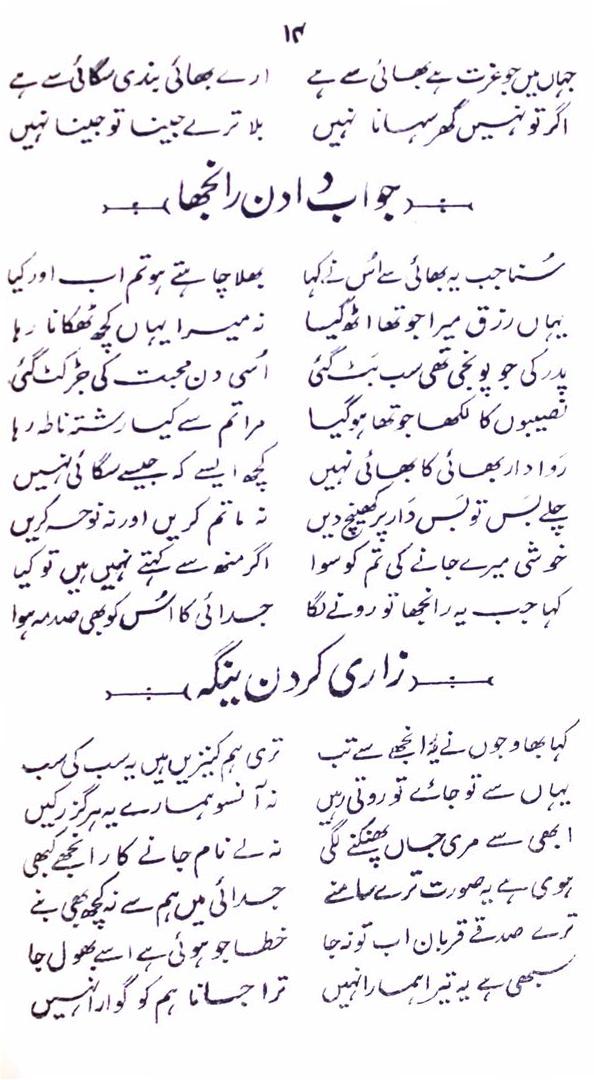 ۱۴
جہاں میں جو عزت ہے بھائی سے ہے ارے بھائی بندی سگائی سے ہے
اگر تو نہیں گھر سہانا نہیں بلا ترے جینا تو جینا نہیں
جواب دادن رانجھا
سُنا جب یہ بھائی سے اُس نے کہا بھلا چاہتے ہو تم اب اور کیا
یہاں رزق میرا جو تھا اٹھ گیا نہ میرا یہاں کچھ ٹھکانا رہا
پدر کی جو پونجی تھی سب بَٹ گئی اُسی دن محبت کی جڑ کٹ گئی
نصیبوں کا لکھا جو تھا ہو گیا مرا تم سے کیا رشتہ ناطہ رہا
رَوا دار بھائی کا بھائی نہیں کچھ ایسے کہ جیسے سگائی نہیں
چلے بَس تو بَس دَار پر کھینچ دیں نہ ماتم کریں اور نہ نوحہ کریں
خوشی میرے جانے کی تم کو سوا اگر منھ سے کہتے نہیں ہیں تو کیا
کہا جب یہ رانجھا تو رونے لگا جدائی کا اُس کو بھی صدمہ ہوا
زاری کردن ینگہ
کہا بھاوجوں نے یہ رانجھے سے تب تری ہم کنیزیں ہیں یہ سب کی سب
یہاں سے تو جائے تو روتی رہیں نہ آنسو ہمارے یہ ہرگز رکیں
ابھی سے مری جاں پھنکنے لگی نہ لے نام جانے کا رانجھے کبھی
ہوی ہے یہ صورت ترے سامنے جدائی میں ہم سے نہ کچھ بھی بنے
ترے صدقے قربان اب تو نہ جا خطا جو ہوئی ہے اسے بھول جا
سبھی ہے یہ تیرا ہمارا نہیں ترا جانا ہم کو گوارا نہیں